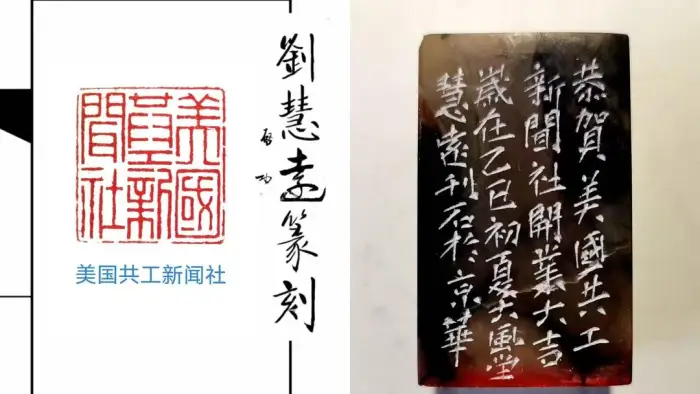 美國
共工新
聞社
美国共工新闻社
劉慧索篆刻
啟功
恭賀美國共工
新聞社開業大吉
歲在乙巳初夏大風堂
慧索刊石於京華